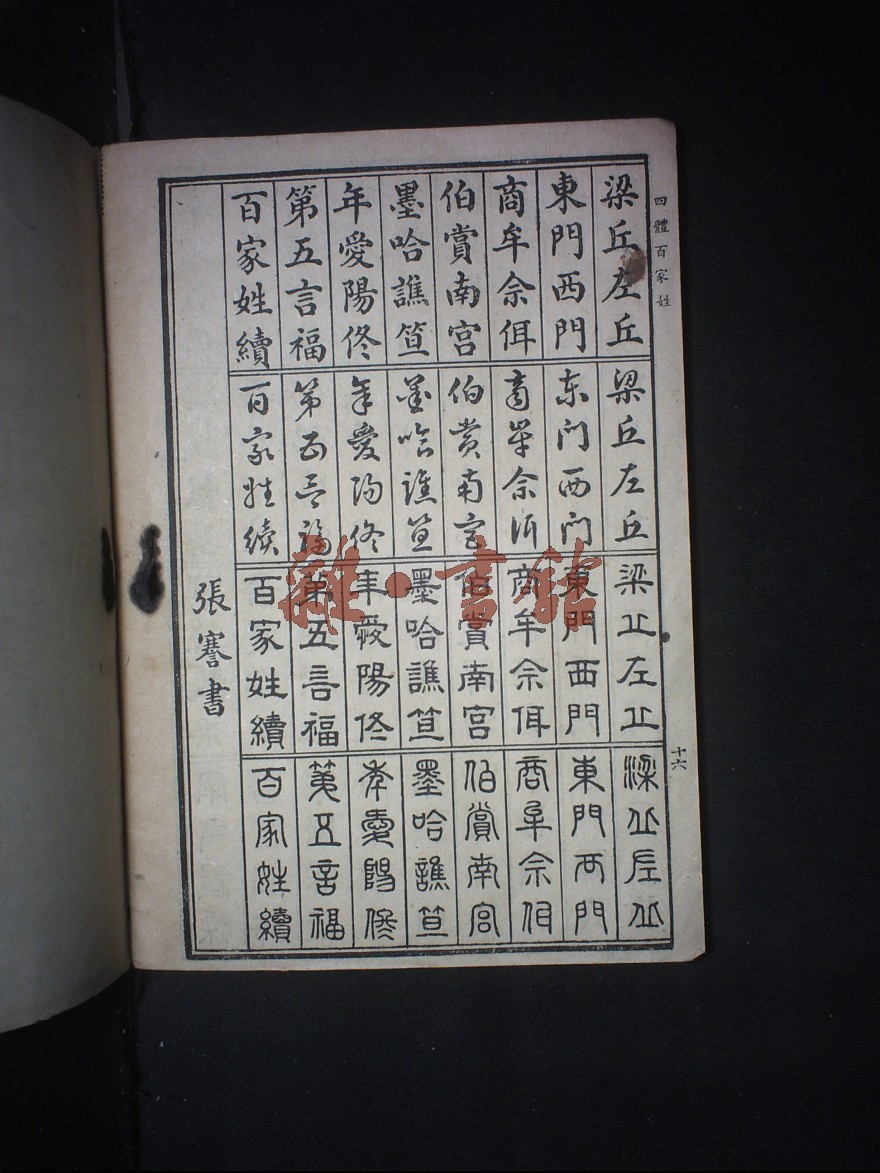 四體百家姓
十六
梁丘左丘
東門西門
商牟佘佴
伯賞南宮
墨哈譙笪
年愛陽佟
第五言福
百家姓續
梁丘左丘
东门西门
商牟佘佴
伯賞南宮
墨哈譙笪
年愛陽佟
第五言福
百家姓續
梁丘左丘
東門西門
商牟佘佴
伯賞南宮
墨哈譙笪
年愛陽佟
第五言福
百家姓續
梁丘左丘
東門西門
商牟佘佴
伯賞南宮
墨哈譙笪
年愛陽佟
第五言福
百家姓續
張謇書
雜·書館